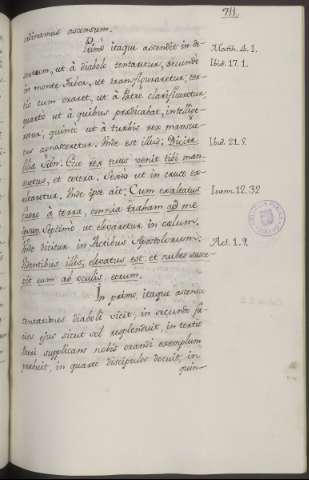 711
altiramus ascensum.
Primo itaque ascendit in de-
sertum, ut à diabolo tentaretur, secundò
in monte Tabor, ut transfiguraretur, ter-
tiò cum oraret, ut à Patre clarificaretur,
quartò ut à quibus prædicabat, intellige-
retur, quintò ut à turbis rex mansue-
tus monstraretur. Unde est illud: Dicite
filiæ Sion: Ecce rex tuus venit tibi man-
suetus, et cetera. Sextò ut in cruce ex-
altaretur. Unde ipse ait: Cum exaltatus
fuero à terra, omnia traham ad me
ipsum. Septimò ut elevaretur in cœlum.
Unde dicitur in Actibus Apostolorum:
Videntibus illis, elevatus est: et nubes susce-
pit eum ab oculis eorum.
In primo itaque ascensu
tentationes diaboli vicit, in secundo fa-
cies ejus sicut sol resplenduit, in tertio
Patri supplicans nobis orandi exemplum
præbuit, in quarto discipulos docuit, in
quin-
Matth. 4. 1.
Ibid. 17. 1.
Ibid. 21. 5.
Ioann. 12. 32
Act. 1. 9.